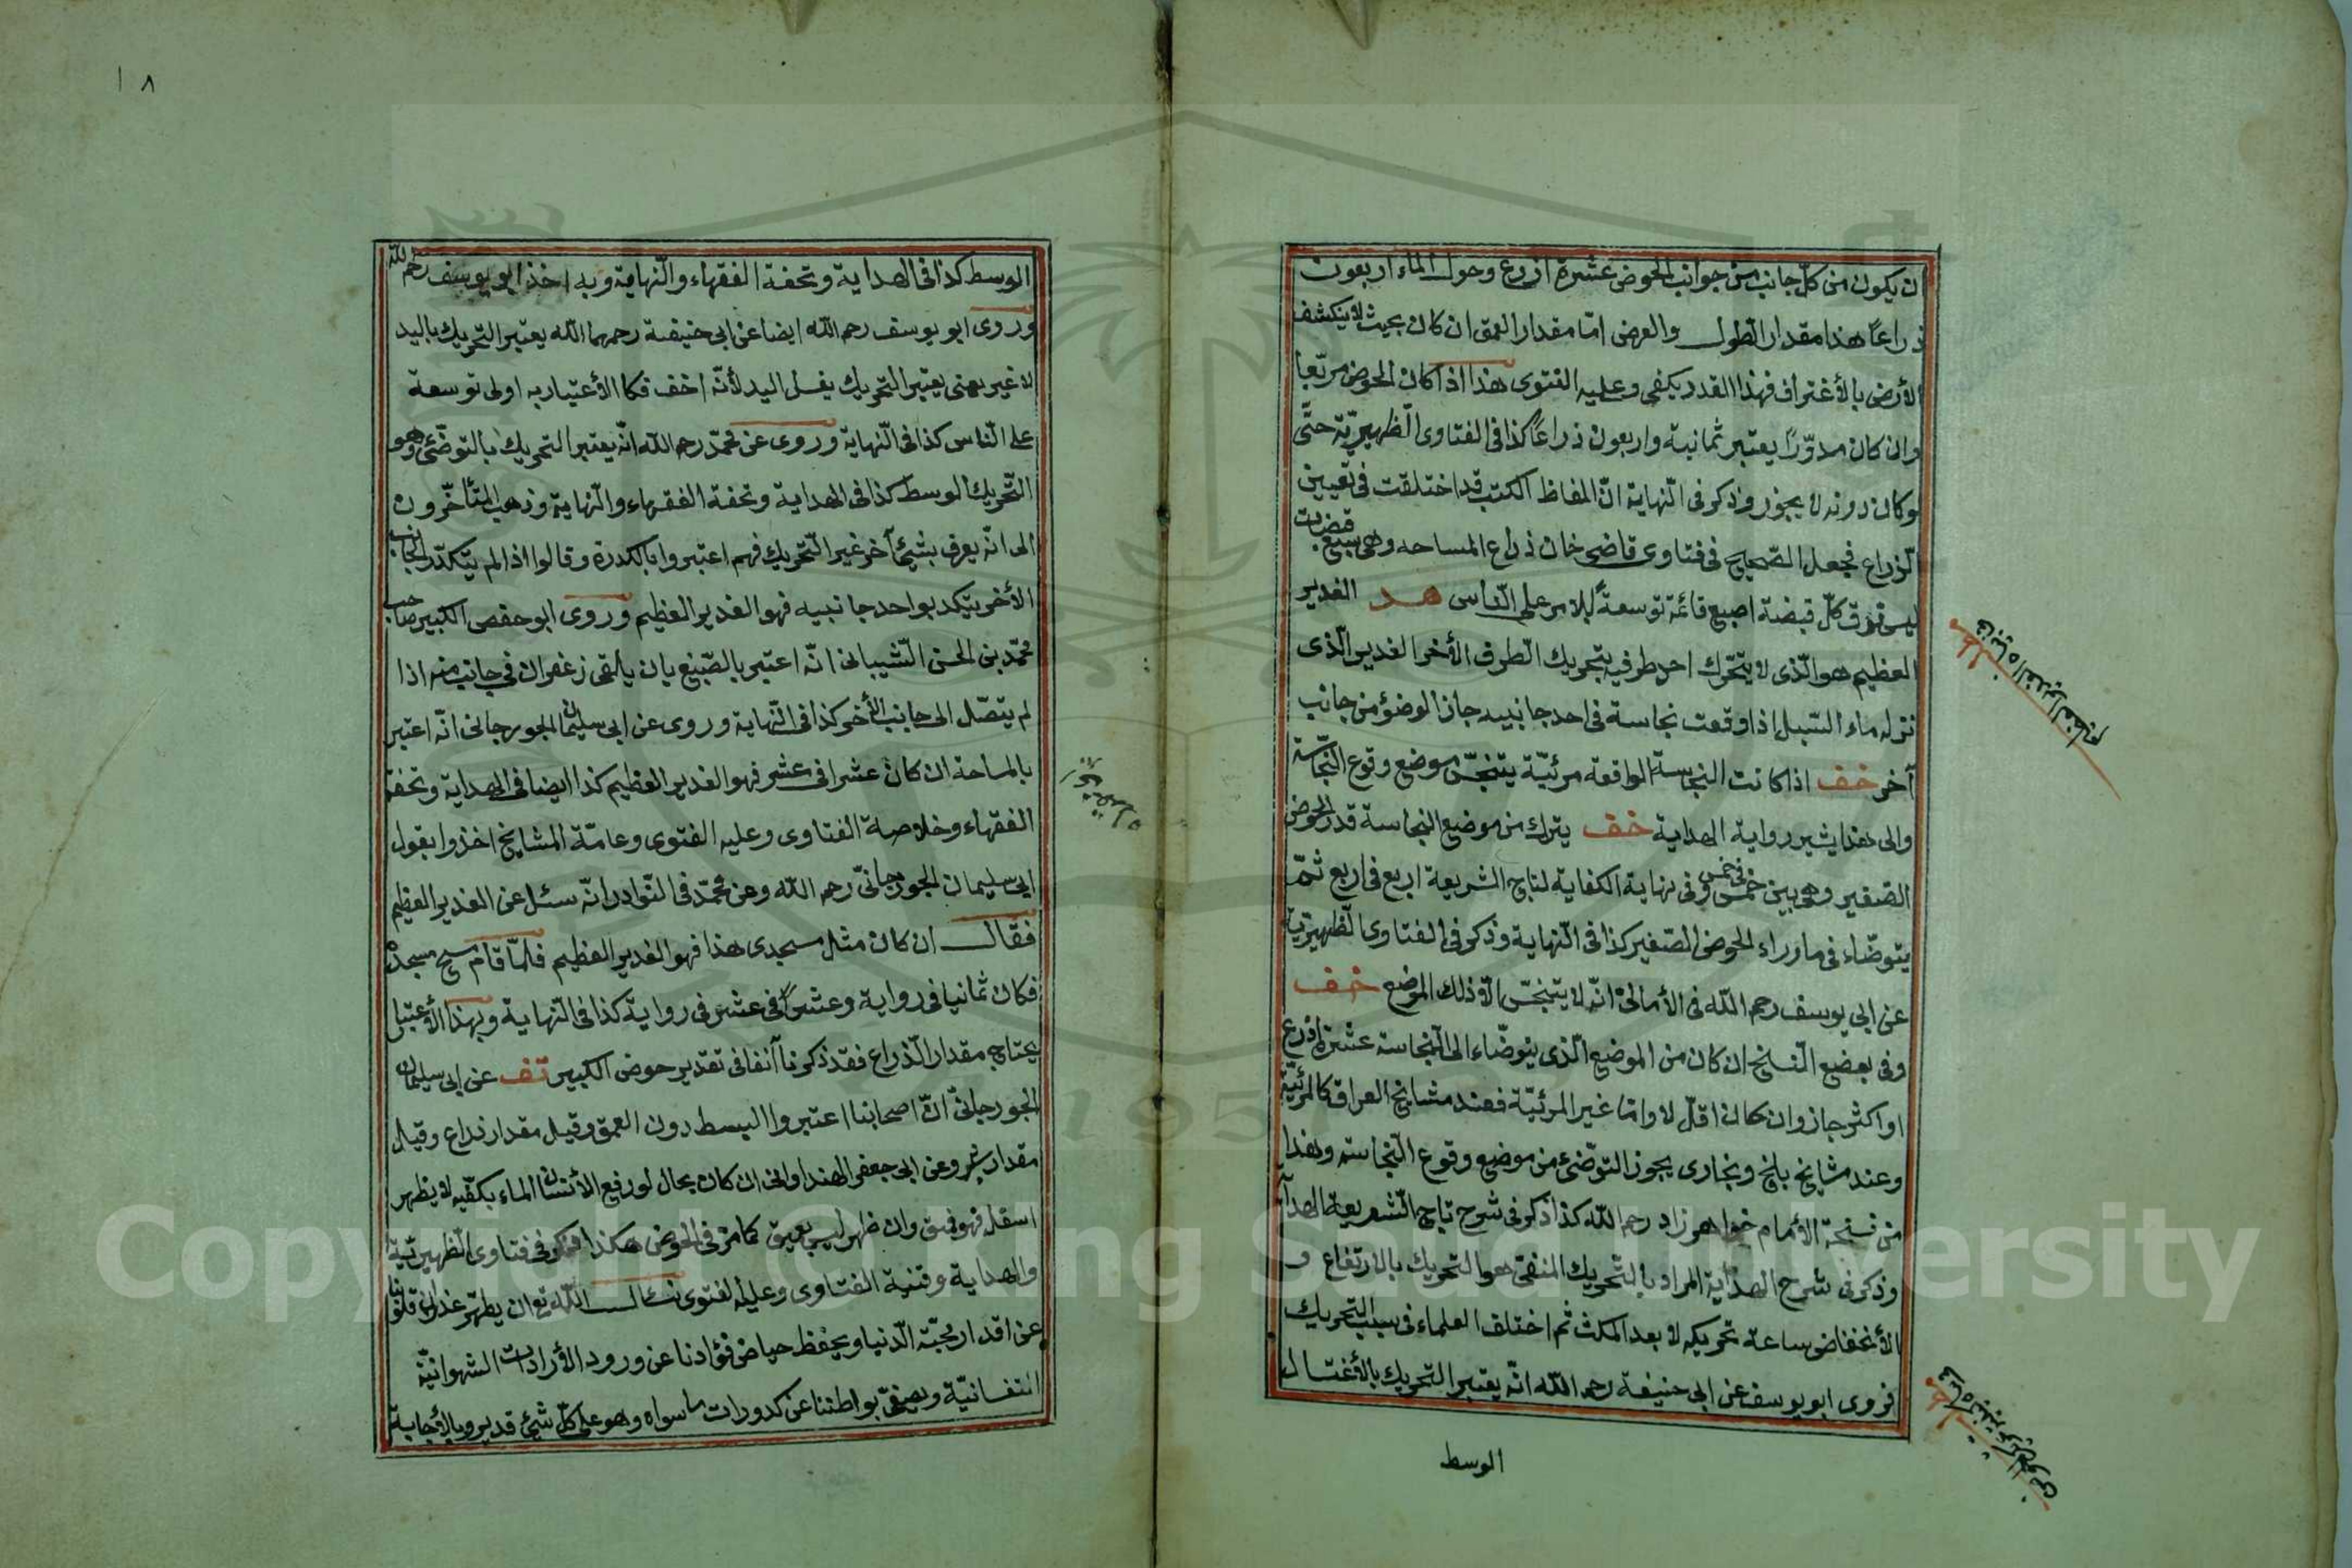 ان يكون من كلّ جانب من جوانب الحوض عشرة اذرع وحول الماء اربعون
ذراعاً هذا مقدار الطول والعرض امّا مقدار العمق ان كان بحيث لا ينكشف
الارض بالأغتراف فهذا القدر يكفى وعليه الفتوى هذا اذا كان الحوض مربّعا
وان كان مدوّرًا يعتبر ثمانية واربعون ذراعاً كذا فى الفتاوى الظهيريّة حتّى
لو كان دونه لا يجوز وذكر فى النّهاية انّ الفاظ الكتب قد اختلفت فى تعيين
الذراع فجعل الصّحيح فى فتاوى قاضى خان ذراع المساحه وهى سبع قبضات
ليس فوق كلّ قبضة اصبع قائمة توسعةً للامر على النّاس هد الغدير
العظيم هو الّذى لا يتحّرك احد طرفيه بتحريك الطّرف الأخر الغدير الّذى
نزله ماء السّيل اذا وقعت نجاسة فى احد جانبيه جاز الوضؤ من جانب
آخر خف اذا كانت النجاسة الواقعة مرئيّة يتنجّس موضع وقوع النّجاسة
والى هذا يشير رواية الهداية خف يترك من موضع النجاسة قدر الحوض
الصّغير وهى بين خمس فى خمس وفى نهاية الكفاية لتاج الشريعة اربع فى اربع ثمّ
يتوضّاء فى ماوراء الحوض الصّغير كذا فى النّهاية وذكر فى الفتاوى الظهيريّة
عن ابى يوسف رحم اللّه فى الأمالى انّه لا يتنجّس الّا ذلك الموضع خف
وفى بعضع النّسخ ان كان من الموضع الّذى يتوضّاء الى النّجاسة عشرة اذرع
او اكثر جاز وان كان اقلّ لا وامّا غير المرئيّة فعند مشايخ العراق كالمرئيّة
وعند مشايخ بلخ وبخارى يجوز التوضّئ من موضع وقوع النّجاسة وهذا
من نسخة الأمام خواهر زاد رحم اللّه كذا ذكر فى شرح تاج الشّريعة الهداية
وذكر فى شرح الهداية المراد بالتّحريك المنفى هو التّحريك بالارتفاع و
الأنخفاض ساعة تحريكه لا بعد المكث ثم اختلف العلماء فى سبب التحريك
فروى ابو يوسف عن ابى حنيفة رحم اللّه انّه يعتبر التحريك بالأغتسال
الوسط
١٨
الوسط كذا فى الهداية وتحفة الفقهاء والنّهاية وبه اخذ ابو يوسف رحم اللّه
وروى ابو يوسف رحم اللّه ايضا عن ابى حنيفة رحمهما اللّه يعتبر التّحريك باليد
لا غير يعنى يعتبر التّحريك بغسل اليد لأنّه اخف فكا الأعتبار به اولى توسعة
على النّاس كذا فى النّهاية وروى عن محمّد رحم اللّه انّه يعتبر التحريك بالتّوضّئ وهو
التّحريك الوسط كذا فى الهداية وتحفة الفقهاء والنّهاية وذهب المتأخّرون
الى انّه يعرف بشئ آخر غير التّحريك فهم اعتبروا بالكدرة وقالوا اذا لم يتكدّر الجانب
الأخر بتكد بواحد جانبيه فهو الغدير العظيم وروى ابو حفص الكبير صاحب
محمّد بن الحسن الشّيبانى انّه اعتبر بالصّبغ بان يالقى زعفران فى جانب منه اذا
لم يتصّل الى جانب الأخر كذا فى النّهاية وروى عن ابى سليمان الجورجانى انّه اعتبر
بالمساحة ان كان عشرا فى عشر فهو الغدير العظيم كذا ايضا فى الهداية وتحفة
الفقهاء وخلاصة الفتاوى وعليه الفتوى وعامّة المشايخ اخذوا بقول
ابى سليمان الجورجانىّ رحم اللّه وعن محمّد فى النّوادر انّه سئل عن الغدير العظيم
فقال ان كان مثل مسجدى هذا فهو الغدير العظيم فلمّا قام مسح مسجده
فكان ثمانيا فى رواية وعشرًا فى عشر فى رواية كذا فى النّهاية وبهذا الأعتبار
يحتاج مقدار الذّراع فقد ذكرنا آنفا فى تقدير حوض الكبير تف عن ابى سليمان
الجورجانىّ انّ اصحابنا اعتبروا البسط دون العمق وقيل مقدار ذراع وقيل
مقدار شبر وعن ابى جعفر الهنداوانى ان كان بحال لو رفع الأنسان الماء بكفّيه لا يظهر
اسفله فهو عميق وان ظهر ليس بعميق كما مرّ فى الحوض هكذا فى فتاوى الظهيريّة
والهداية وقنية الفتاوى وعليه الفتوى نسأل اللّه تع ان يطهّر غدران قلوبنا
عن اقدار محبّة الدّنيا ويحفظ حياض فؤادنا عن ورود الأرادات الشهوانيّة
النفسانيّة ويصفىّ بواطننا عن كدورات ما سواه وهو على كلّ شئ قدير وبالأجابة
Copyright © King Saud University
195